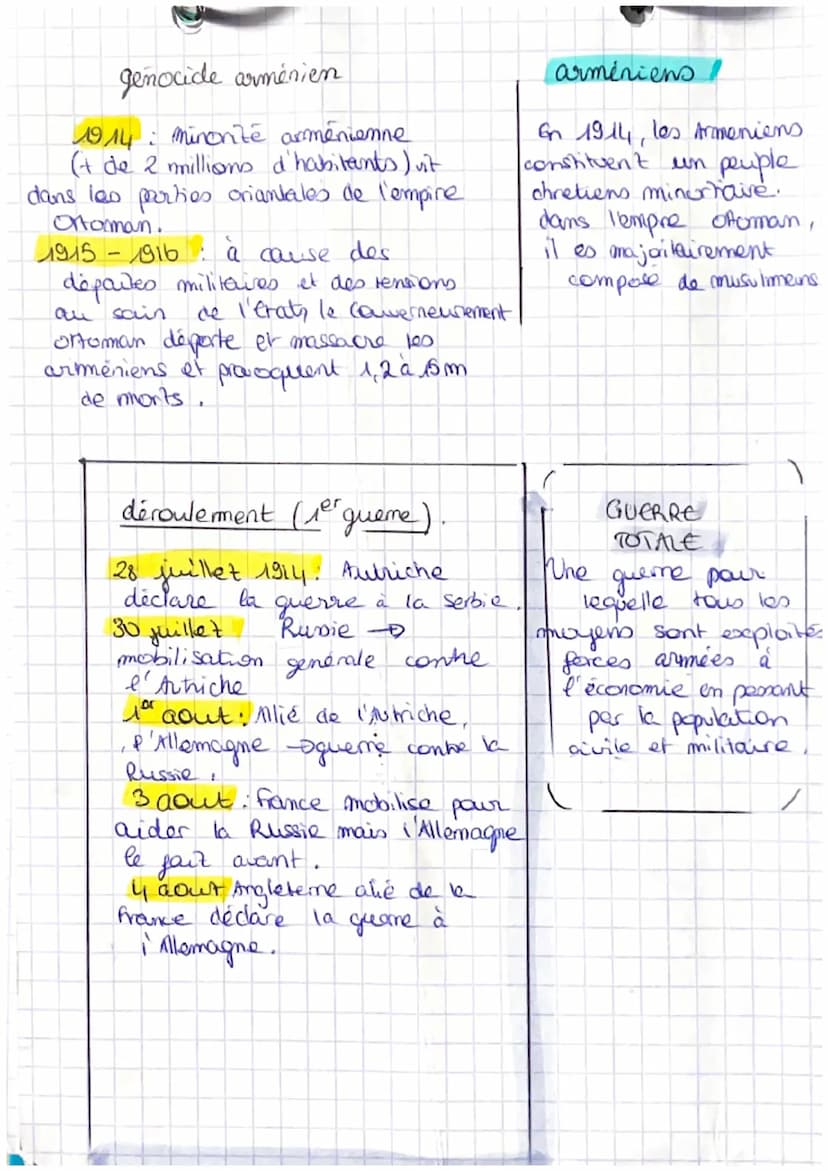 génocide arménien
1914 : minorité arménienne
(+ de 2 millions d'habitants) vit
dans les parties oriantales de l'empire
Ottoman.
1915 - 1916 : à cause des
dépaites militaires et des tensions
au sain de l'états le Gouverneurement
ottoman déporte et massacre les
arméniens et provoquent 1,2 à 15m
de morts.
arméniens
En 1914, les Armeniens
constituent un peuple
chretiens minortaire.
dans l'empre ottoman,
il es majoitairement
composé de musulmans
déroulement (1er guerre).
28 juillet 1914 : Autriche
déclare la guerre à la Serbie.
30 juillet Russie →
mobilisation générale contre
l'Autriche
1er aout : Allié de l'Autriche,
l'Allemagne → guerre contre la
Russie.
3 aout : france mobilise pour
aider la Russie mais l'Allemagne
le fait avant.
4 aout Angleterre alié de la
france déclare la guerre à
l'Allemagne.
GUERRE
TOTALE
Une guerre pour
lequelle tous les
moyens sont exploités
forces armées à
l'économie en passant
par la population
civile et militaire.